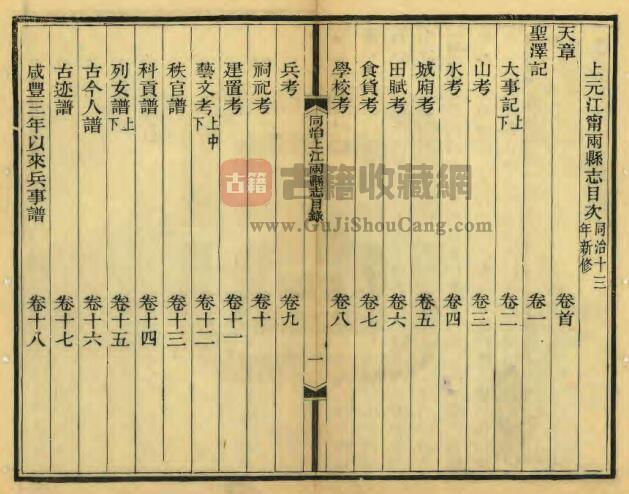 上元江甯兩縣志目次 同治十三年新修
天章 卷首
聖澤記 卷一
大事記 上下 卷二
山考 卷三
水考 卷四
城廂考 卷五
田賦考 卷六
食貨考 卷七
學校考 卷八
同治上江兩縣志目錄 一
兵考 卷九
祠祀考 卷十
建置考 卷十一
藝文考 上中下 卷十二
秩官譜 卷十三
科貢譜 卷十四
列女譜 上下 卷十五
古今人譜 卷十六
古迹譜 卷十七
咸豐三年以來兵事譜 卷十八
古籍 古籍收藏網
www.GuJiShouCang.com